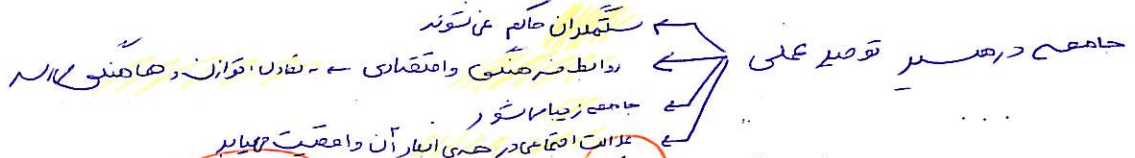 جامعه در مسیر توحید عملی
ستمگران حاکم نمی‌شوند
روابط فرهنگی و اقتصادی ← تعادل، توازن و هماهنگی می‌رسد
جامعه زیبا می‌شود
عدالت اجتماعی در همهٔ ابعاد آن واقعیت می‌یابد